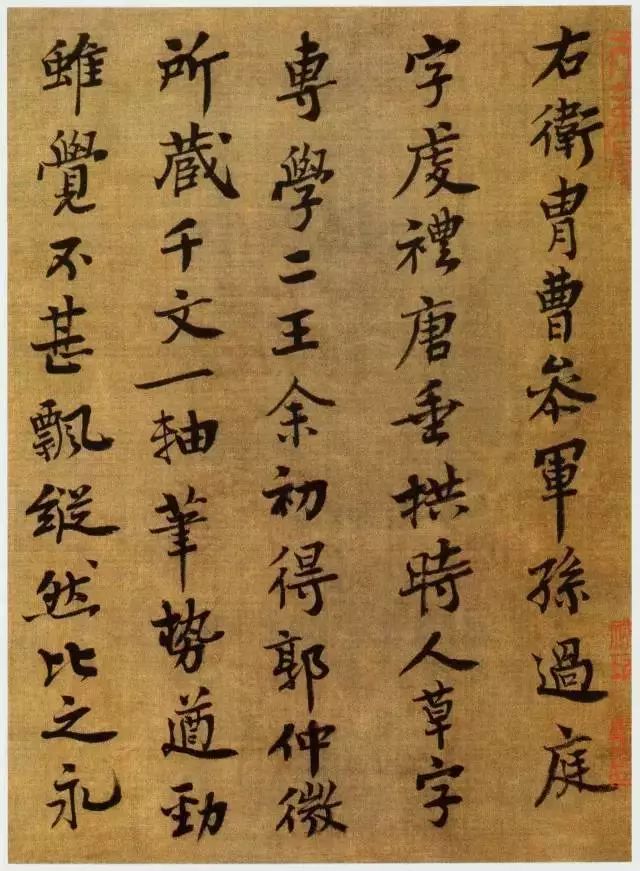 右衛胄曹叅軍孫過庭
字虔禮唐垂拱時人草字
專學二王余初得郭仲微
所蔵千文一軸筆勢遒勁
雖覺不甚飄縱然比之永